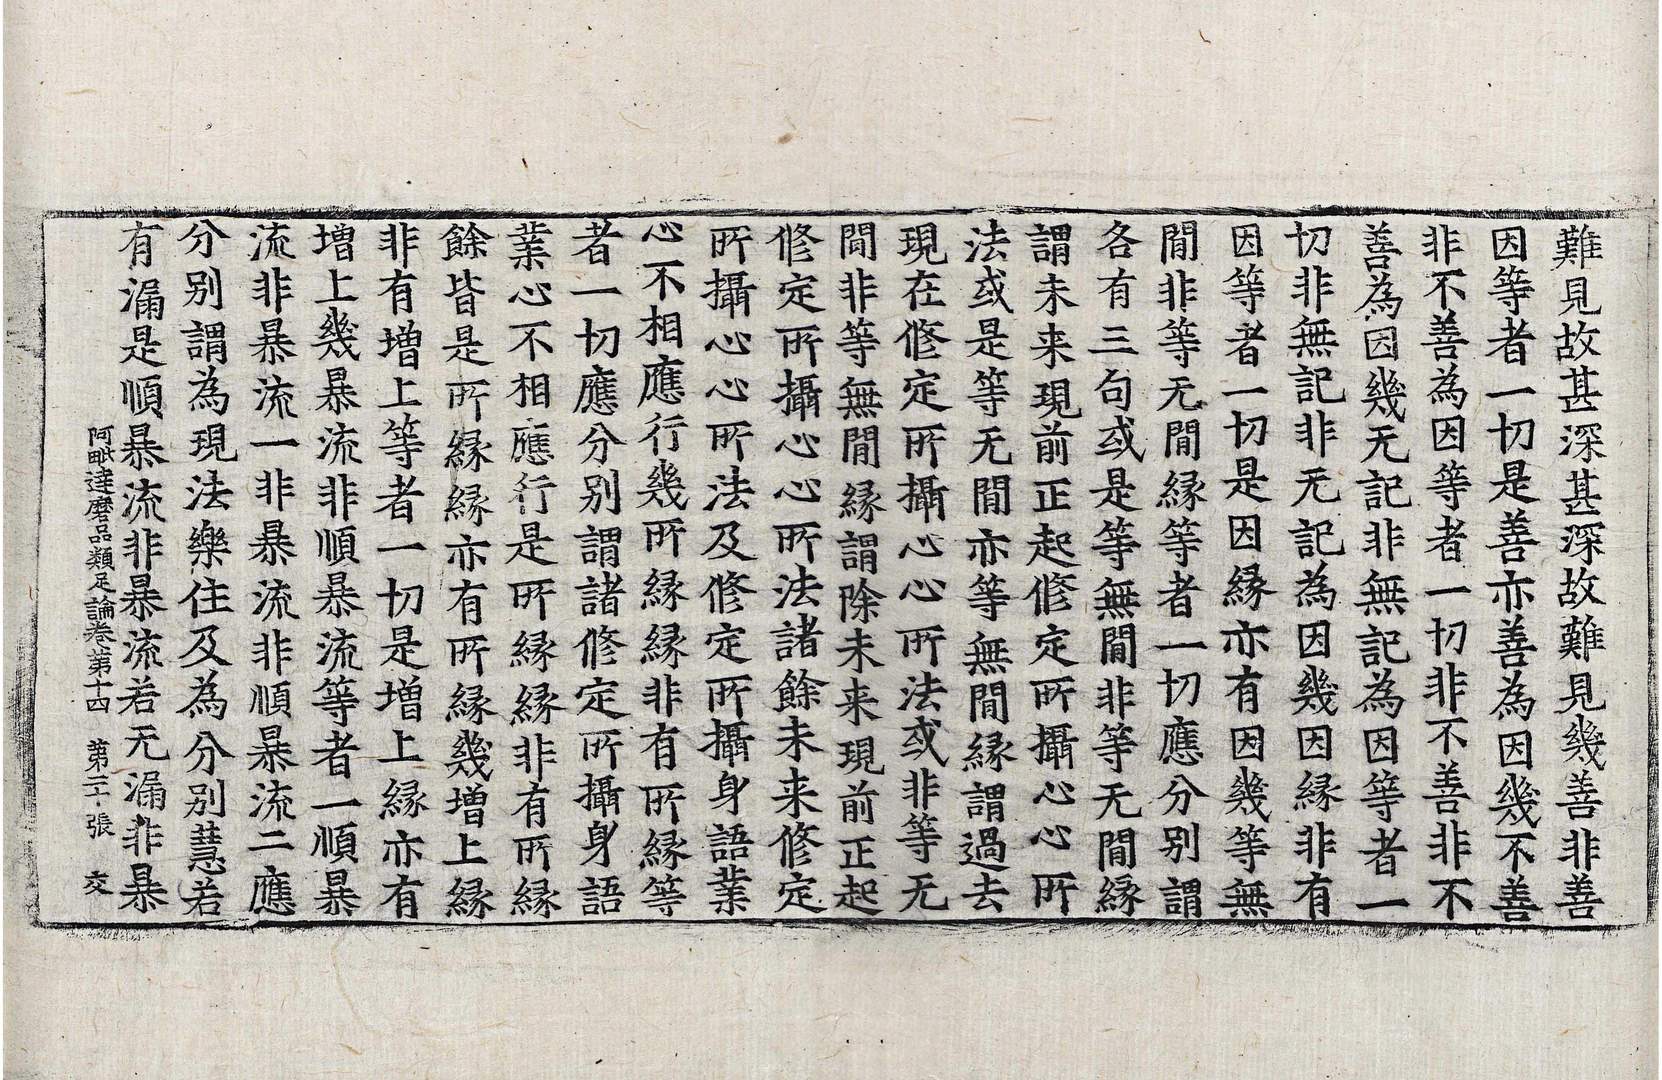 難見故甚深甚深故難見幾善非善
因等者一切是善亦善為因幾不善
非不善為因等者一切非不善非不
善為因幾无記非無記為因等者一
切非無記非无記為因幾因縁非有
因等者一切是因縁亦有因幾等無
閒非等无閒縁等者一切應分别謂
各有三句或是等無閒非等无閒縁
謂未来現前正起修定所攝心心所
法或是等无閒亦等無閒縁謂過去
現在修定所攝心心所法或非等无
閒非等無閒縁謂除未来現前正起
修定所攝心心所法諸餘未来修定
所攝心心所法及修定所攝身語業
心不相應行幾所縁縁非有所縁等
者一切應分别謂諸修定所攝身語
業心不相應行是所縁縁非有所縁
餘皆是所縁縁亦有所縁幾增上縁
非有增上等者一切是增上縁亦有
增上幾暴流非順暴流等者一順暴
流非暴流一非暴流非順暴流二應
分别謂為現法樂住及為分别慧若
有漏是順暴流非暴流若无漏非暴
阿毗達磨品類足論卷第十四 第二十張 交